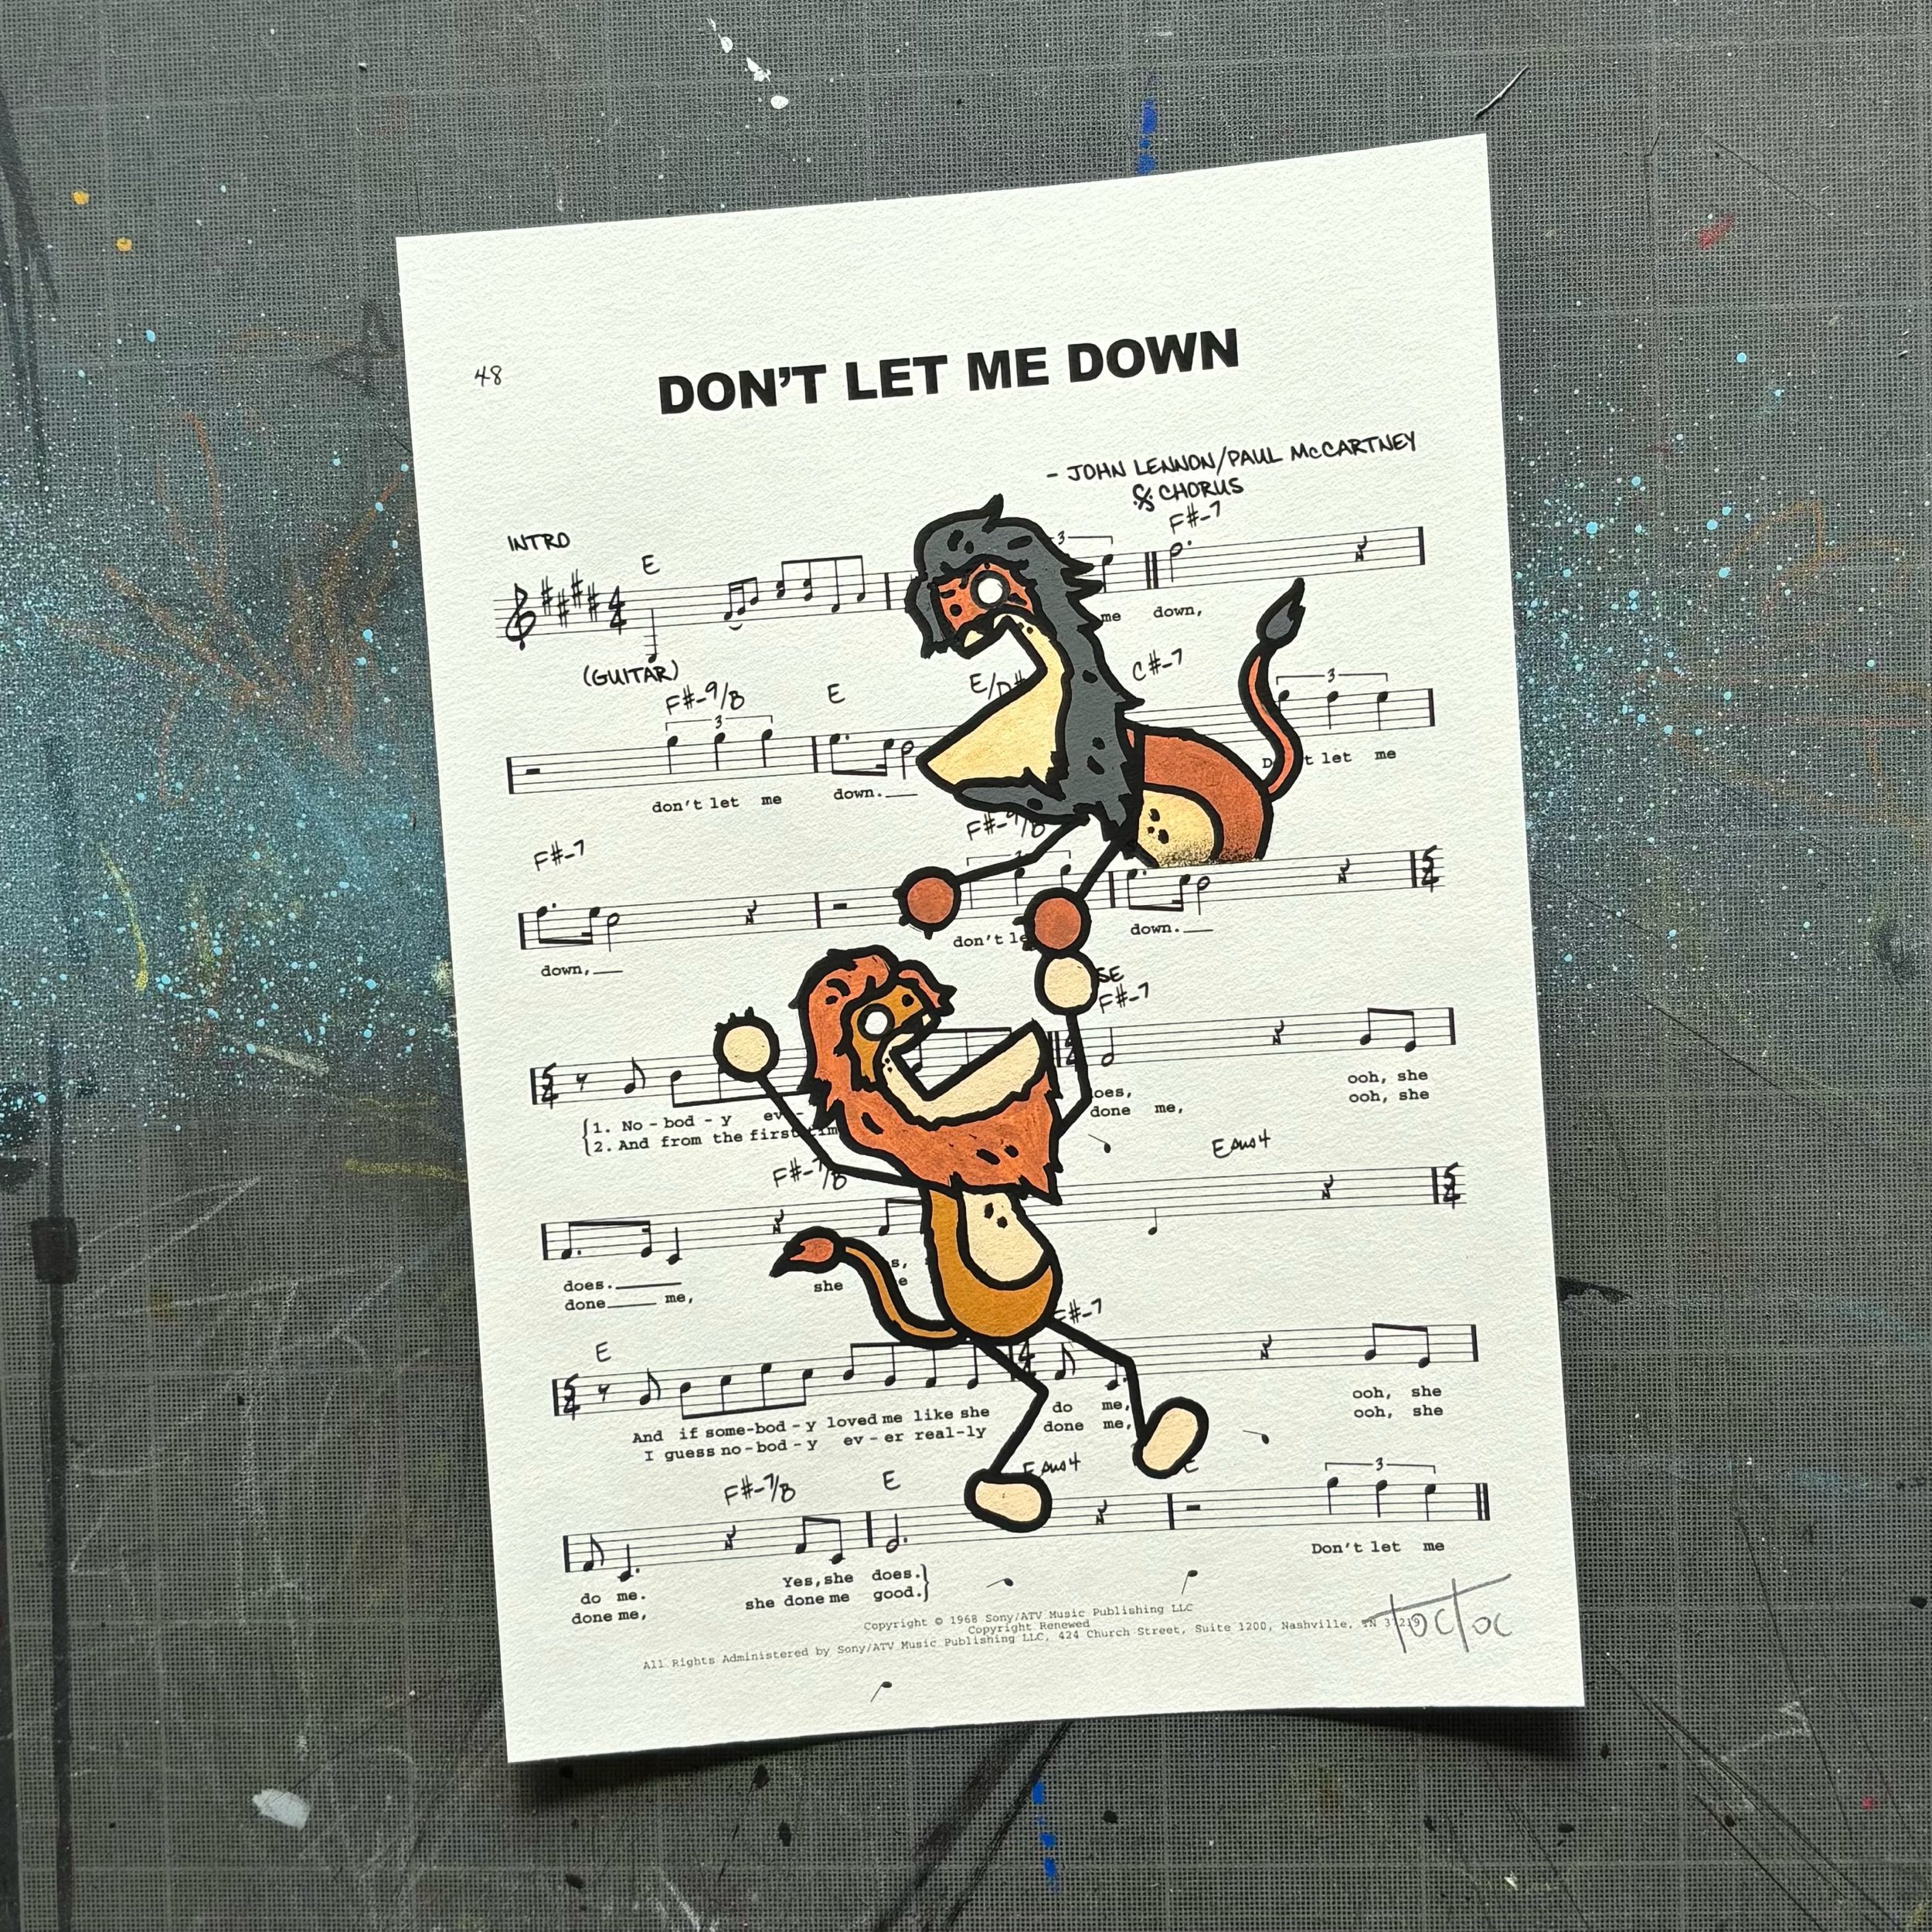 48
DON'T LET ME DOWN
- JOHN LENNON/PAUL McCARTNEY
CHORUS
INTRO
E
F#-7
4
4
3
(GUITAR)
me down,
F#-9/B E E/D# C#-7
3 3
don't let me down. Don't let me
F#-7 F#-9/B
5
4
down, don't le down.
F#-7
5
4
1. No-bod-y ev-
2. And from the first
oes, ooh, she
done me, ooh, she
F#-7/B Esus4
5
4
does. she
done me,
E F#-7
5
4
And if some-bod-y loved me like she do me, ooh, she
I guess no-bod-y ev-er real-ly done me, ooh, she
F#-7/B E Esus4 E
3
do me. Yes, she does. Don't let me
done me, she done me good.
Copyright © 1968 Sony/ATV Music Publishing LLC
Copyright Renewed
All Rights Administered by Sony/ATV Music Publishing LLC, 424 Church Street, Suite 1200, Nashville, TN 37219
TocToc